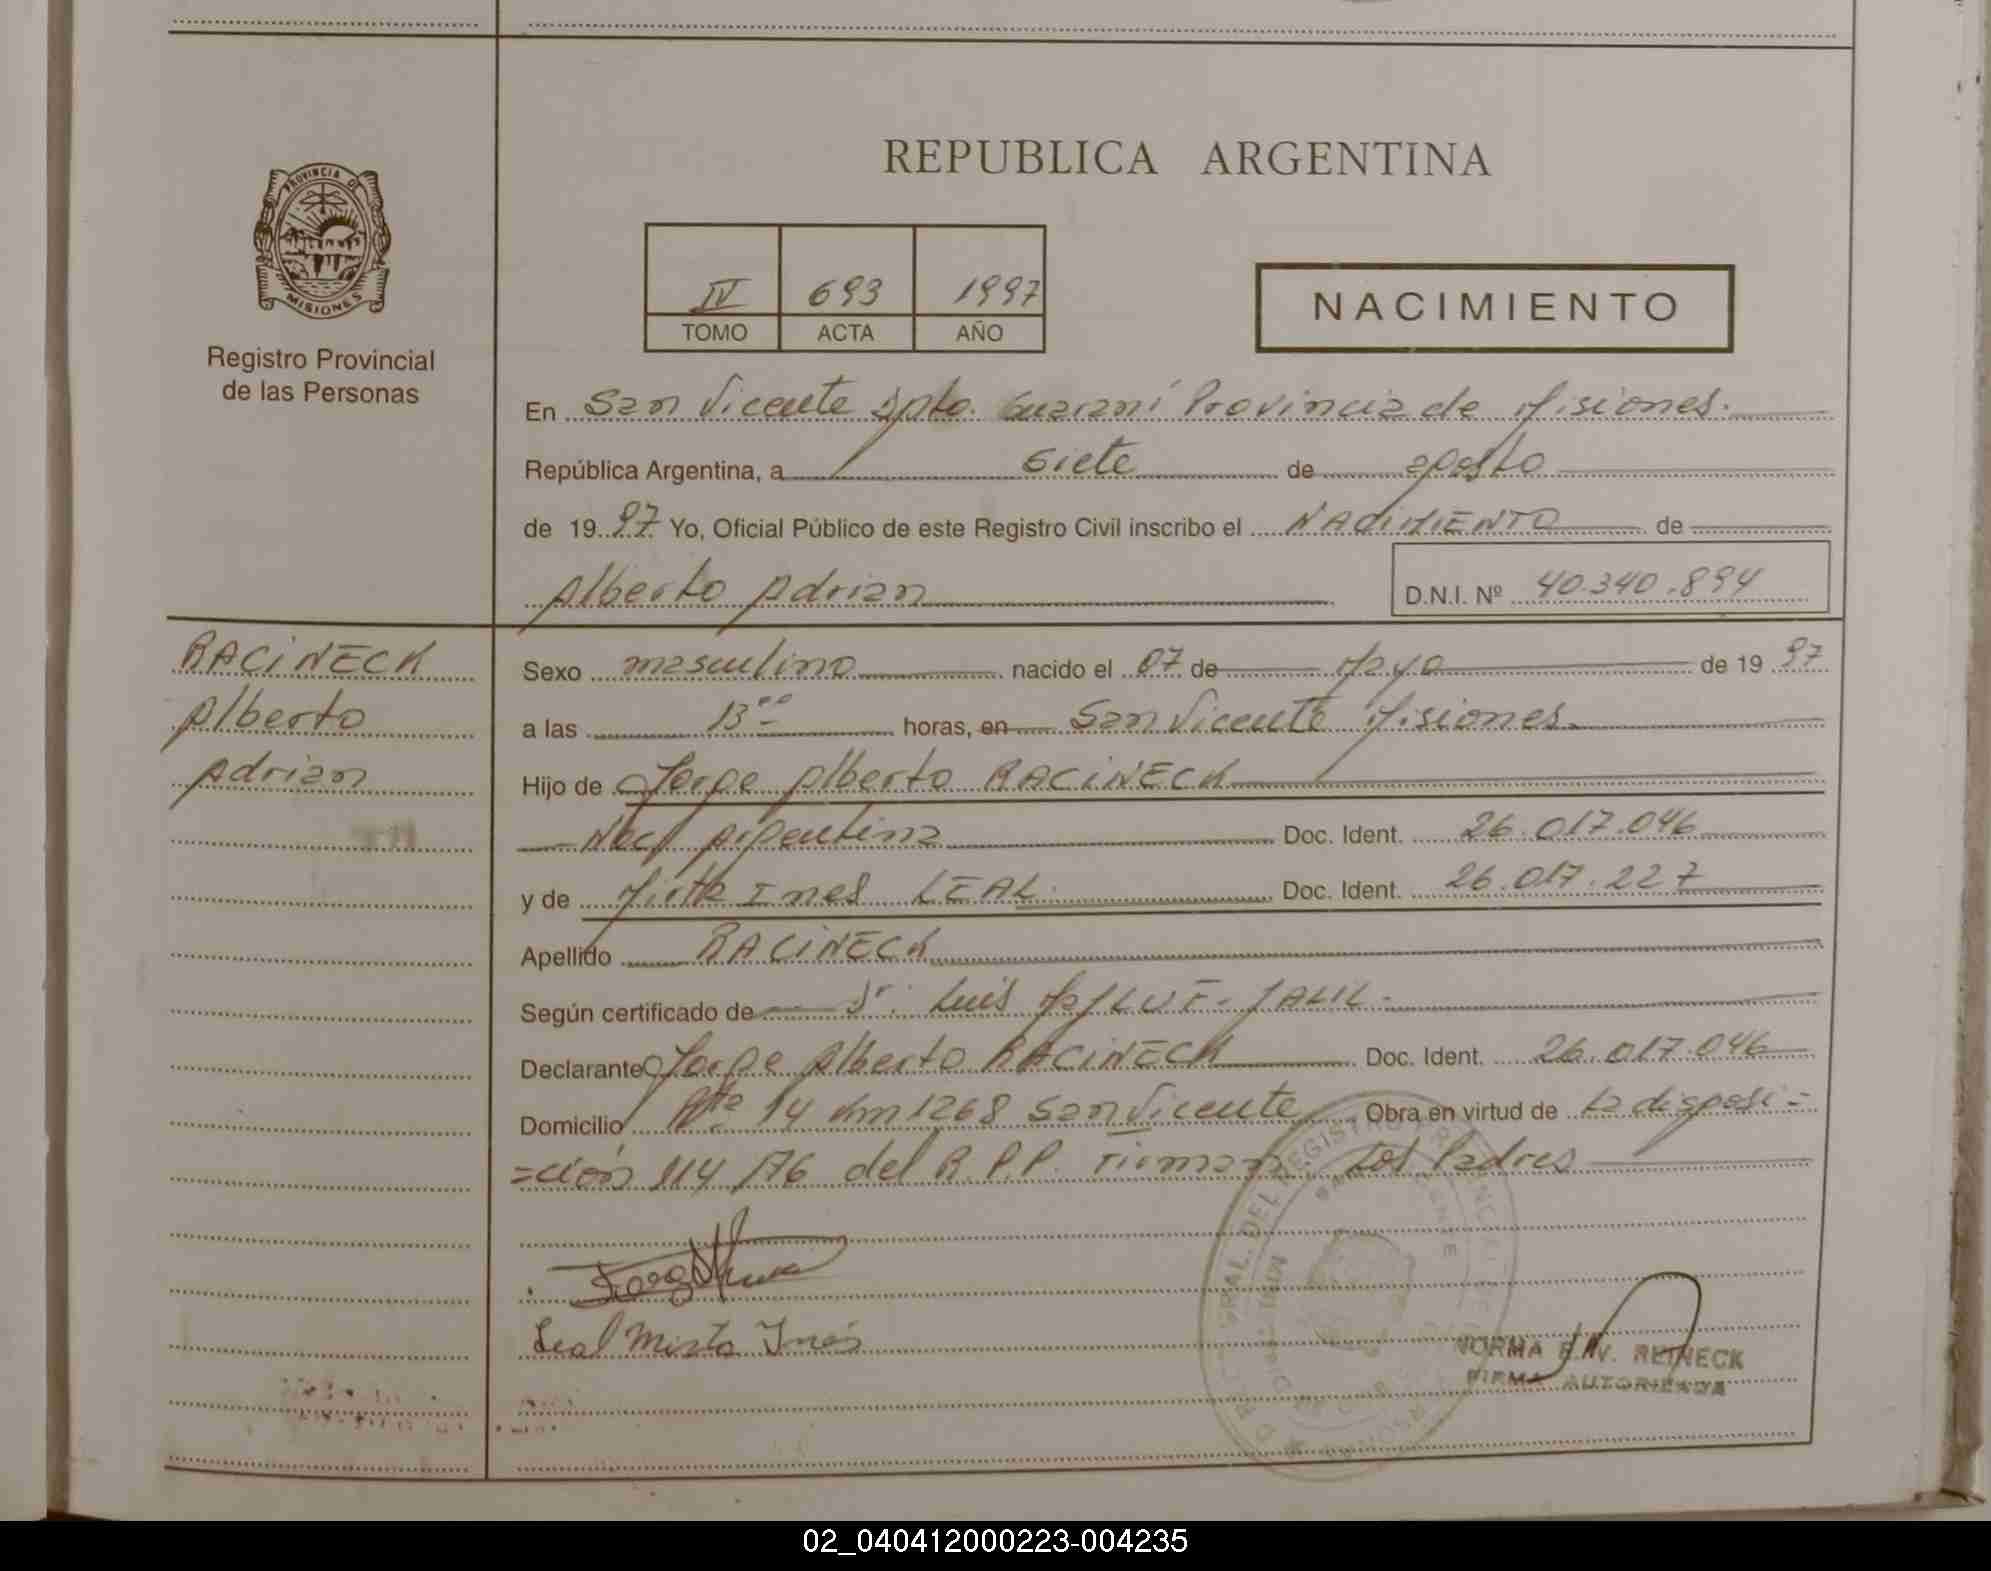 PROVINCIA DE
MISIONES
Registro Provincial
de las Personas
REPUBLICA ARGENTINA
IV 693 1997
TOMO ACTA AÑO
NACIMIENTO
En San Vicente Dpto. Guaraní Provincia de Misiones.
República Argentina, a siete de agosto
de 1997 Yo, Oficial Público de este Registro Civil inscribo el NACIMIENTO de
Alberto Adrian
D.N.I. Nº 40.340.894
RACINECK
Alberto
Adrian
Sexo masculino nacido el 07 de Mayo de 1997
a las 13 00 horas, en San Vicente Misiones.
Hijo de Jorge Alberto RACINECK
Nac. Argentina Doc. Ident. 26.017.046
y de Mirta Ines LEAL Doc. Ident. 26.017.227
Apellido RACINECK
Según certificado de Dr. Luis JALIL-
Declarante Jorge Alberto RACINECK Doc. Ident. 26.017.046
Domicilio Rta 14 km 1268 San Vicente Obra en virtud de la disposi=
=ción 114/76 del R.P.P. Firman: Los Padres
Leal Mirta Inés
NORMA REINECK
FIRMA AUTORIZADA
02_040412000223-004235